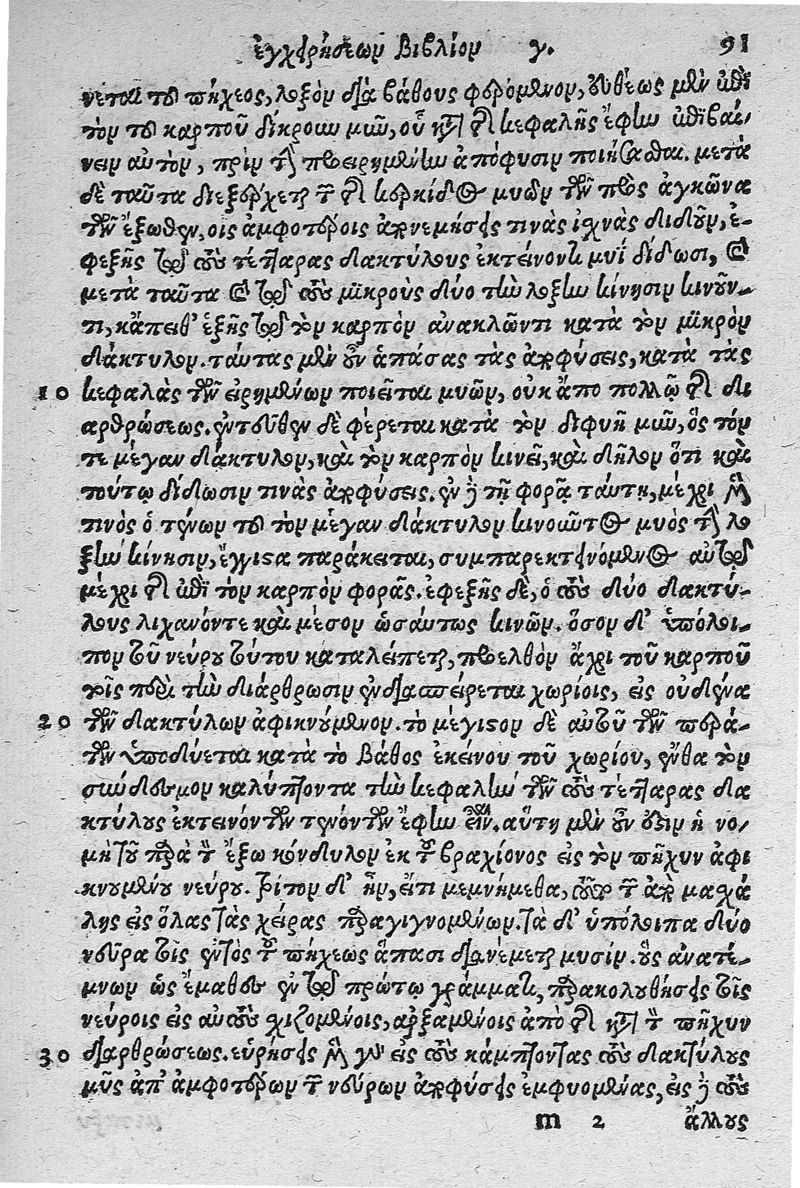 ἐγχειρήσεων βιβλίον γ. 91
νεται τοῦ πήχεος, λοξὸν διὰ βάθους φερόμενον, εὐθέως μὲν ἐπὶ
τὸν τοῦ καρποῦ δίκρουν μῦν, οὗ κατὰ τῆς κεφαλῆς ἔφην ἐπιβαί-
νειν αὐτὸν, πρὶν τὴν προειρημένην ἀπόφυσιν ποιήσασθαι. μετὰ
δὲ ταῦτα διεξέρχεται τῶν τῆς κερκίδος μυῶν τῶν πρὸς ἀγκῶνα
τῶν ἔξωθεν, οἷς ἀμφοτέροις ἀπονεμήσεις τινὰς ἰχνὰς διδοῦν, ἐ-
φεξῆς τῷ τοὺς τέτταρας δακτύλους ἐκτείνοντι μυῒ δίδωσι, καὶ
μετὰ ταῦτα καὶ τῷ τοὺς μικροὺς δύο τὴν λοξὴν κίνησιν κινοῦν-
τι, κἄπειθ' ἑξῆς τῷ τὸν καρπὸν ἀνακλῶντι κατὰ τὸν μικρὸν
δάκτυλον. ταύτας μὲν οὖν ἁπάσας τὰς ἀποφύσεις, κατὰ τὰς
10 κεφαλὰς τῶν εἰρημένων ποιεῖται μυῶν, οὐκ ἄπο πολλῷ τῆς δι
αρθρώσεως. ἐντεῦθεν δὲ φέρεται κατὰ τὸν διφυῆ μῦν, ὃς τόν
τε μέγαν δάκτυλον, καὶ τὸν καρπὸν κινεῖ, καὶ δῆλον ὅτι καὶ
τούτῳ δίδωσιν τινὰς ἀποφύσεις. ἐν δὲ τῇ φορᾷ ταύτῃ, μέχρι μέν
τινὸς ὁ τένων τοῦ τὸν μέγαν δάκτυλον κινοῦντος μυὸς τὴν λο
ξὴν κίνησιν, ἔγγιστα παράκειται, συμπαρεκτεινόμενος αὐτῷ
μέχρι τῆς ἐπὶ τὸν καρπὸν φορᾶς. ἐφεξῆς δὲ, ὁ τοὺς δύο δακτύ-
λους λιχανόντε καὶ μέσον ὡσαύτως κινῶν. ὅσον δ' ὑπόλοι-
πον τοῦ νεύρου τούτου καταλείπεται, προελθὸν ἄχρι τοῦ καρποῦ
τοῖς περὶ τὴν διάρθρωσιν ἐνδιασπείρεται χωρίοις, εἰς οὐδένα
20 τῶν δακτύλων ἀφικνούμενον. τὸ μέγιστον δὲ αὐτοῦ τῶν περά-
των ὑποδύεται κατὰ τὸ βάθος ἐκείνου τοῦ χωρίου, ἔνθα τὸν
σύνδεσμον καλύπτοντα τὴν κεφαλὴν τῶν τοὺς τέτταρας δα
κτύλους ἐκτεινόντων τενόντων ἔφην εἶναι. αὕτη μὲν οὖν ἐστιν ἡ νο-
μὴ τοῦ παρὰ τὸν ἔξω κόνδυλον ἐκ τοῦ βραχίονος εἰς τὸν πῆχυν ἀφι
κνουμένου νεύρου. τρίτον δ' ἦν, εἴτι μεμνήμεθα, τοῦτο τῶν ἀπὸ μασχά
λης εἰς ὅλας τὰς χεῖρας παραγιγνομένων. τὰ δ' ὑπόλοιπα δύο
νεῦρα τοῖς ἐντὸς τοῦ πήχεως ἅπασι διανέμεται μυσίν. οὓς ἀνατέ-
μνων ὡς ἔμαθες ἐν τῷ πρώτῳ γράμματι, παρακολουθήσεις τοῖς
νεύροις εἰς αὐτοὺς σχιζομένοις, ἀρξαμένοις ἀπὸ τῆς κατὰ τὸν πῆχυν
30 διαρθρώσεως. εὑρήσεις μὲν γὰρ εἰς τοὺς κάμπτοντας τοὺς δακτύλους
μῦς ἀπ' ἀμφοτέρων τῶν νεύρων ἀποφύσεις ἐμφυομένας, εἰς δὲ τοὺς
m 2 ἄλλους